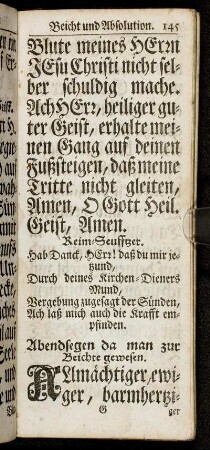 Beicht und Absolution. 145
Blute meines HErrn
JEsu Christi nicht sel-
ber schuldig mache.
Ach HErr, heiliger gu-
ter Geist, erhalte mei-
nen Gang auf deinen
Fußsteigen, daß meine
Tritte nicht gleiten,
Amen, O Gott Heil.
Geist, Amen.
Reim-Seufftzer.
Hab Danck, HErr! daß du mir je-
tzund,
Durch deines Kirchen-Dieners
Mund,
Vergebung zugesagt der Sünden,
Ach laß mich auch die Krafft em-
pfinden.
Abendsegen da man zur
Beichte gewesen.
ALlmächtiger, ewi-
ger, barmhertzi-
G ger